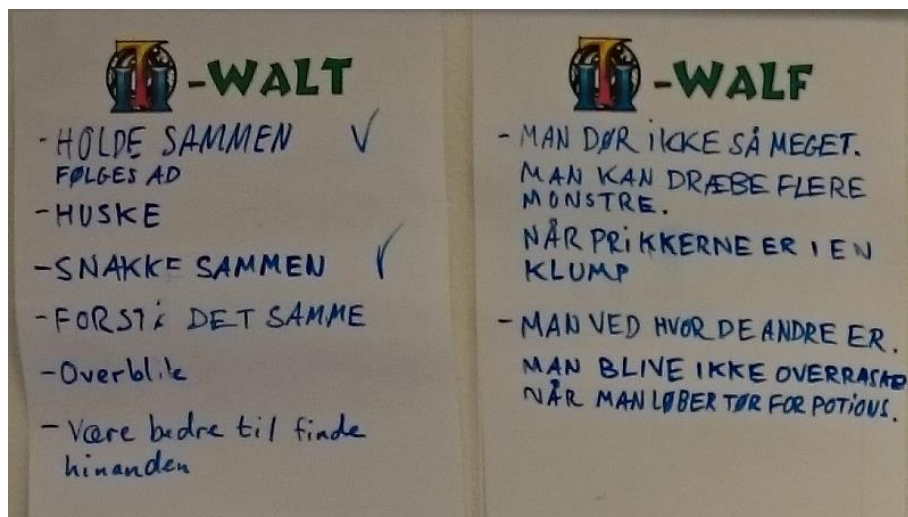 -WALT
- HOLDE SAMMEN V
FØLGES AD
- HUSKE
- SNAKKE SAMMEN V
- FORSTÅ DET SAMME
- Overblik
- Være bedre til finde
hinanden
-WALF
- MAN DØR IKKE SÅ MEGET.
MAN KAN DRÆBE FLERE
MONSTRE.
NÅR PRIKKERNE ER I EN
KLUMP
- MAN VED HVOR DE ANDRE ER.
MAN BLIVE IKKE OVERRASKE
NÅR MAN LØBER TØR FOR POTIONS.